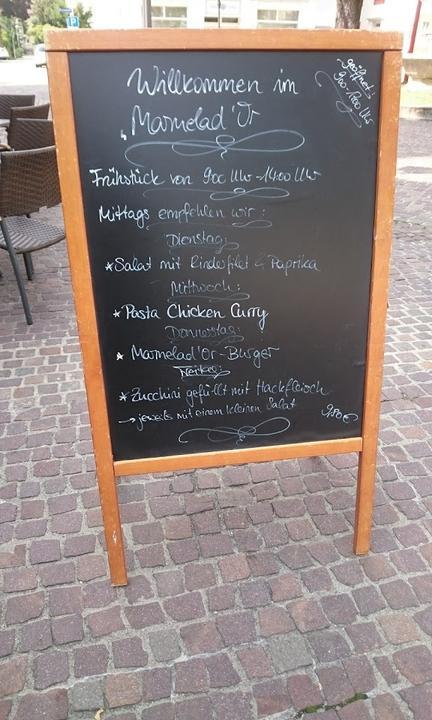 Willkommen im
"Marmelad'Or
geöffnet:
900-1700 Uhr
Frühstück von 900 Uhr -1400 Uhr
Mittags empfehlen wir:
Dienstag
*Salat mit Rinderfilet & Paprika
Mittwoch:
*Pasta Chicken Curry
Donnerstag:
* Marmelad'Or-Burger
Freitag:
*Zucchini gefüllt mit Hackfleisch
→ jeweils mit einem kleinen Salat